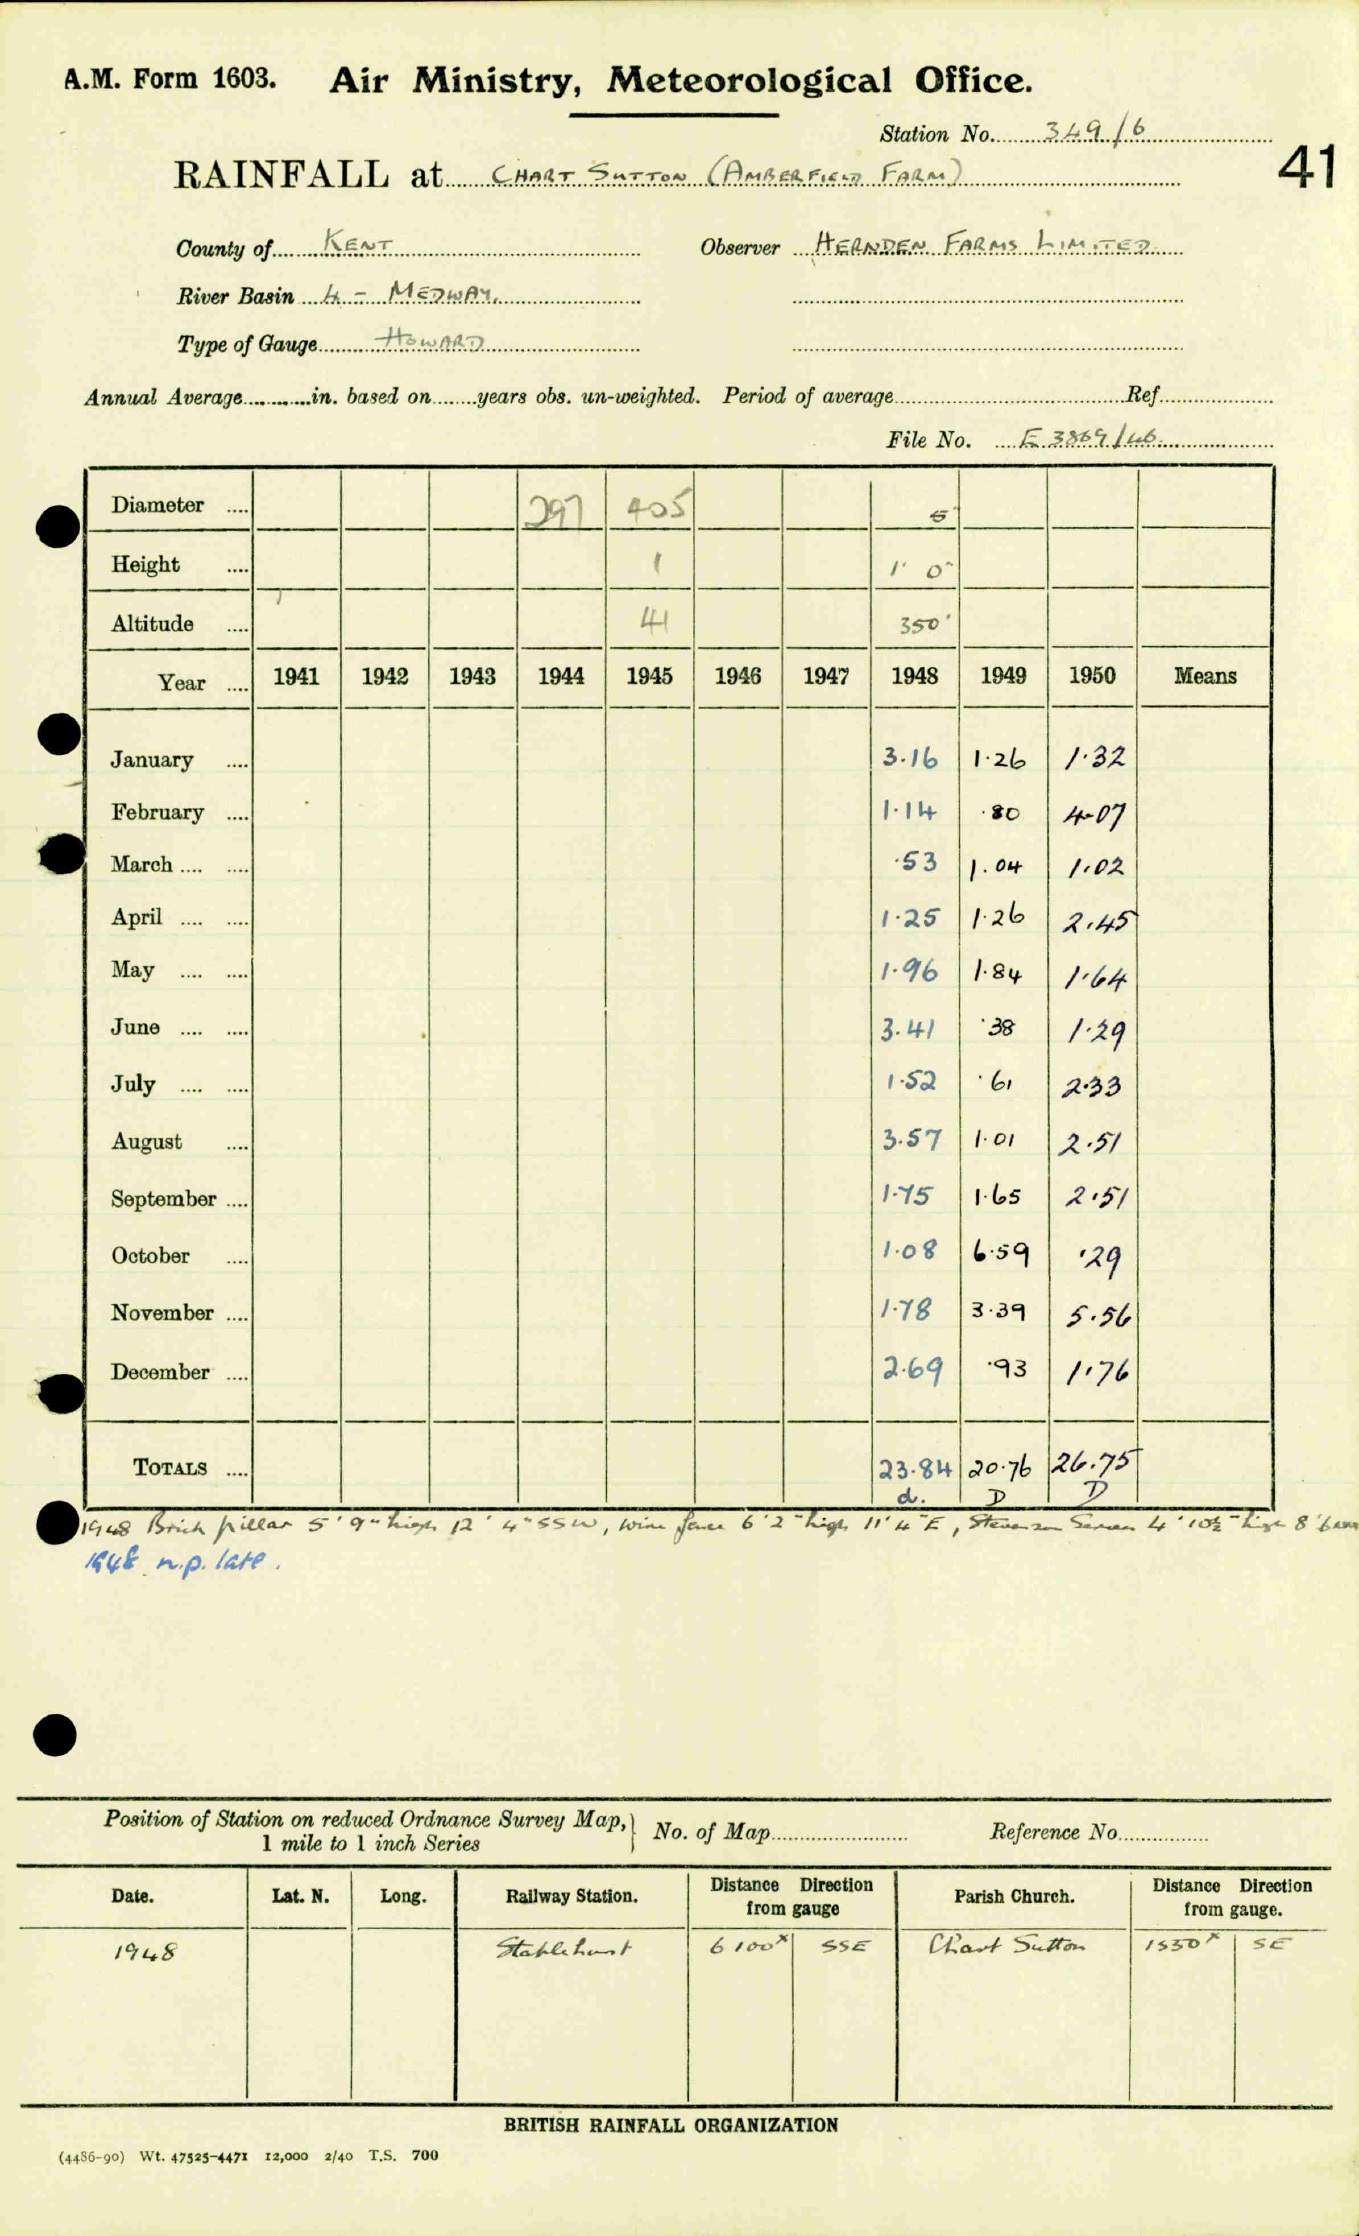 A.M. Form 1603. Air Ministry, Meteorological Office.
Station No. 349/6
41
RAINFALL at CHART SUTTON (AMBERFIELD FARM)
County of KENT Observer HERNDEN FARMS LIMITED
River Basin 4 - MEDWAY.
Type of Gauge HOWARD
Annual Average in. based on years obs. un-weighted. Period of average Ref
File No. E 3869/46
Diameter 297 405 5
Height 1 1' 0"
Altitude 41 350'
Year 1941 1942 1943 1944 1945 1946 1947 1948 1949 1950 Means
January 3.16 1.26 1.32
February 1.14 .80 4.07
March .53 1.04 1.02
April 1.25 1.26 2.45
May 1.96 1.84 1.64
June 3.41 .38 1.29
July 1.52 .61 2.33
August 3.57 1.01 2.51
September 1.75 1.65 2.51
October 1.08 6.59 .29
November 1.78 3.39 5.56
December 2.69 .93 1.76
TOTALS 23.84 20.76 26.75
d. D D
1948 Brick pillar 5' 9" high 12' 4" SSW, wire fence 6' 2" high 11' 4" E, Stevenson Screen 4' 10½" high 8' 6
1948 n.p. late.
Position of Station on reduced Ordnance Survey Map, 1 mile to 1 inch Series No. of Map Reference No.
Date. Lat. N. Long. Railway Station. Distance Direction from gauge Parish Church. Distance Direction from gauge.
1948 Staplehurst 6100x SSE Chart Sutton 1550x SE
BRITISH RAINFALL ORGANIZATION
(4486-90) Wt. 47525-4471 12,000 2/40 T.S. 700